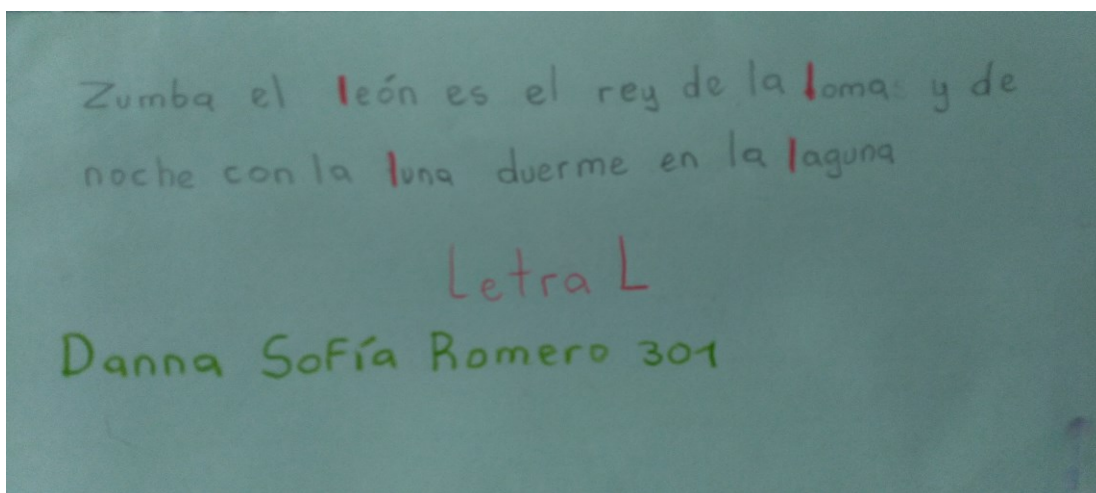 Zumba el león es el rey de la loma y de
noche con la luna duerme en la laguna
Letra L
Danna Sofía Romero 301